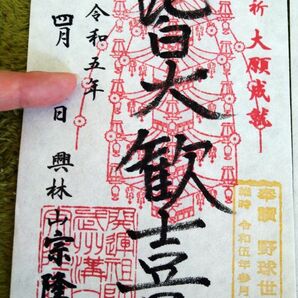 祈 大願成就
皆大歓喜
令和五年
四月 日 興林山宗隆
奉讃 野球世
令和伍年参月